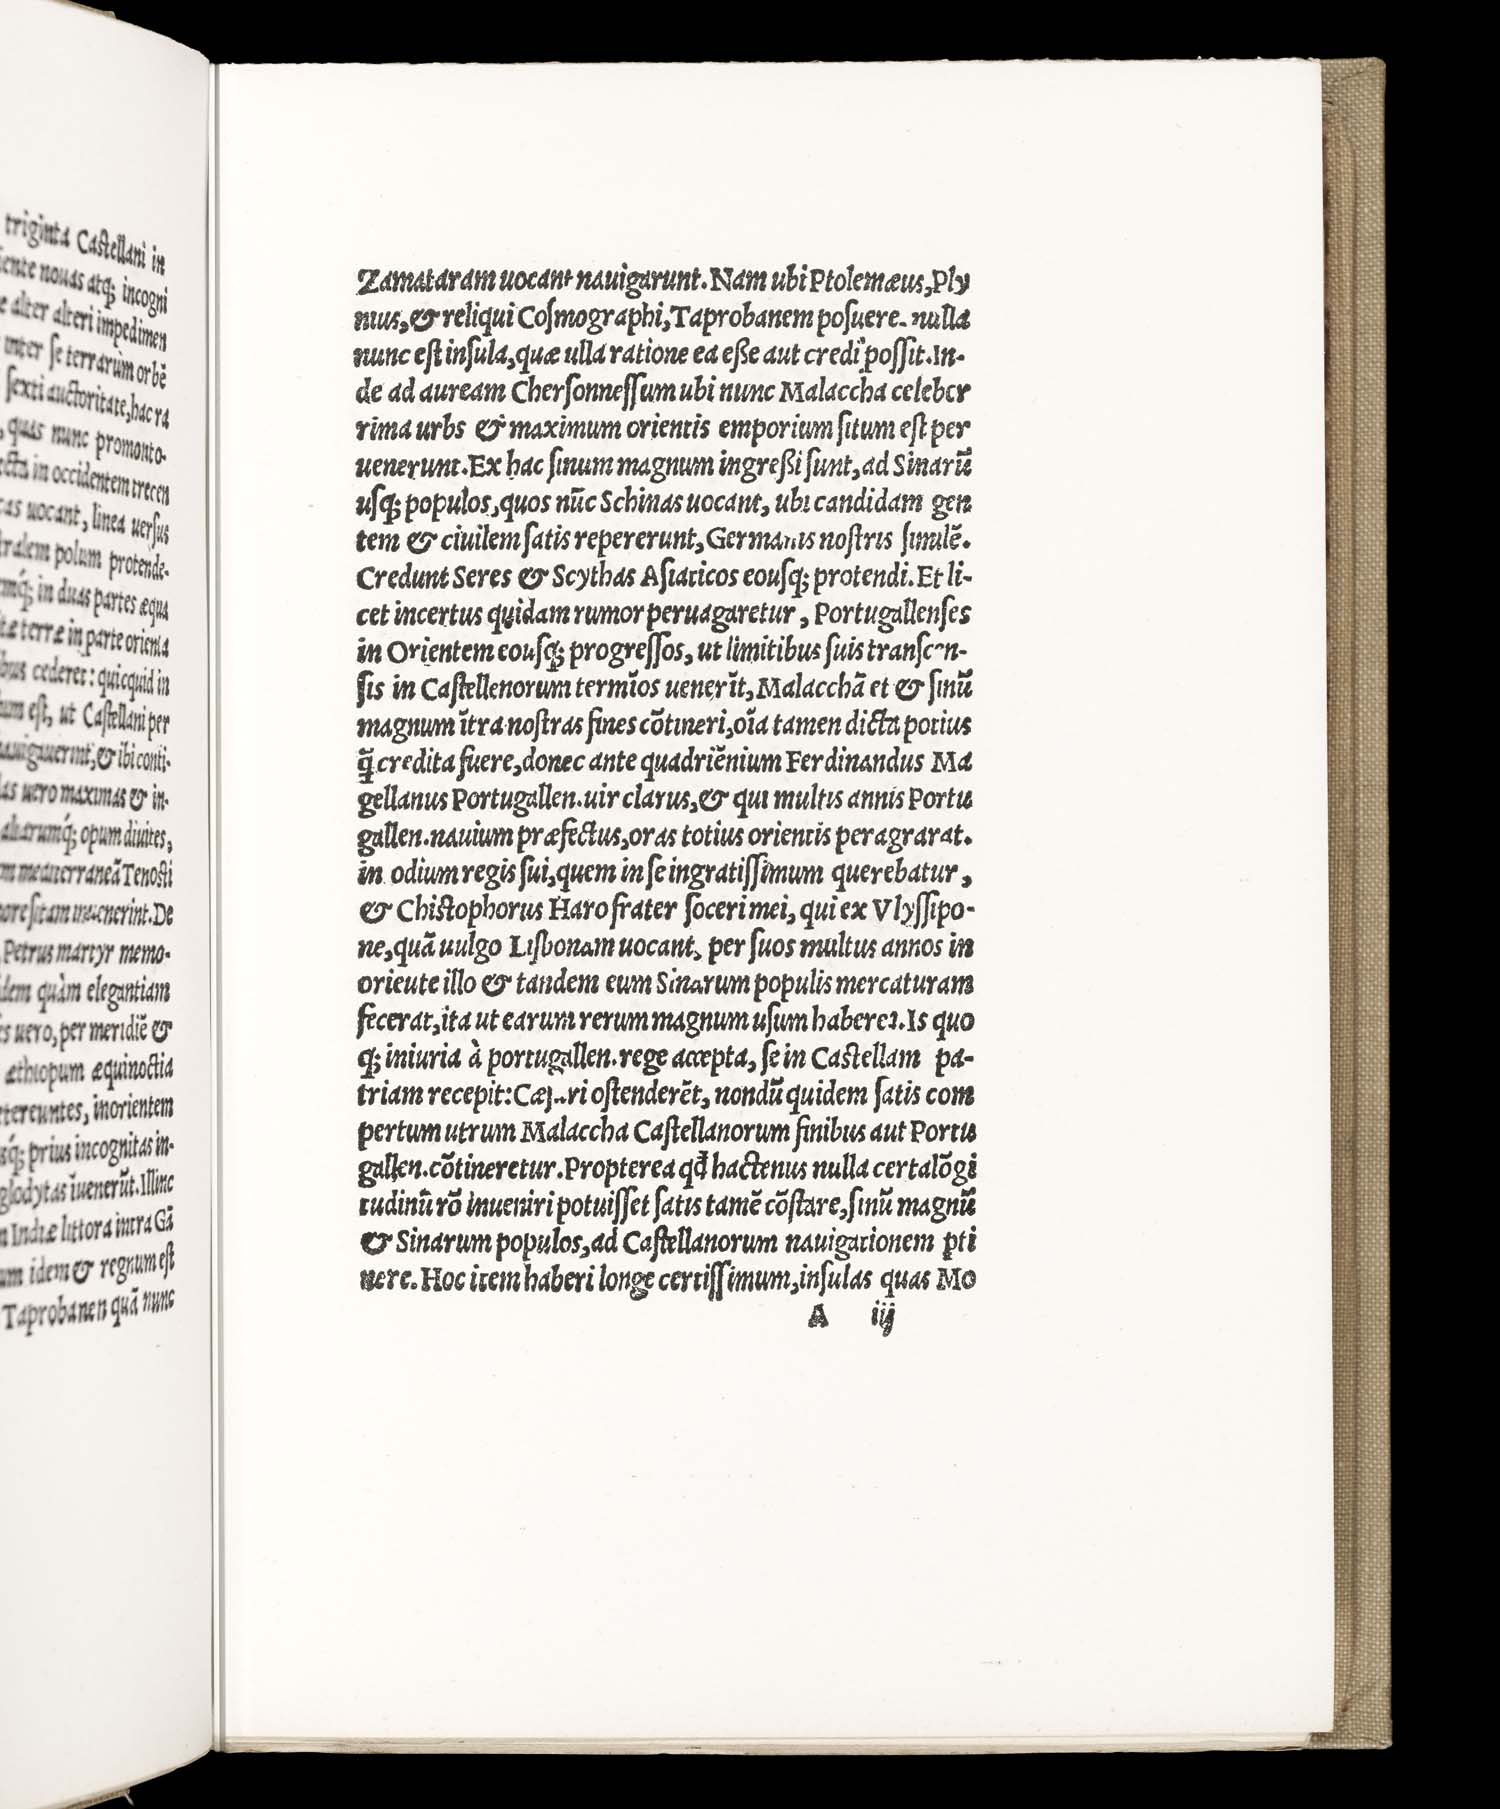 triginta Castellani in
nouas atq; incogni
alter alteri impedimen
inter se terrarùm orbē
sexti auctoritate, hac ra
quas nunc promonto-
in occidentem trecen
uocant, linea uersus
polum protende-
in duas partes æqua
terræ in parte orienta
cederet: quicquid in
est, ut Castellani per
& ibi conti-
uero maximas & in-
opum diuites,
Tenosti
sitam inuenerint. De
Petrus martyr memo-
quàm elegantiam
uero, per meridiē &
æthiopum æquinoctia
inorientem
prius incognitas in-
īuenerūt. Illinc
Indiæ littora intra Gā
idem & regnum est
Taprobanen quā nunc
Zamataram uocant nauigarunt. Nam ubi Ptolemæus, Ply
nius, & reliqui Cosmographi, Taprobanem posuere. nulla
nunc est insula, quæ ulla ratione ea eße aut credi possit. In-
de ad auream Chersonnessum ubi nunc Malaccha celeber
rima urbs & maximum orientis emporium situm est per
uenerunt. Ex hac sinum magnum ingreßi sunt, ad Sinarū
usq; populos, quos nūc Schinas uocant, ubi candidam gen
tem & ciuilem satis repererunt, Germanis nostris similē.
Credunt Seres & Scythas Asiaticos eousq; protendi. Et li-
cet incertus quidam rumor peruagaretur, Portugallenses
in Orientem eousq; progressos, ut limitibus suis transcen-
sis in Castellenorum termīos uenerīt, Malacchā et & sinū
magnum ītra nostras fines cōtineri, oīa tamen dicta potius
q̄ credita fuere, donec ante quadriēnium Ferdinandus Ma
gellanus Portugallen. uir clarus, & qui multis annis Portu
gallen. nauium præfectus, oras totius orientis peragrarat.
in odium regis sui, quem in se ingratissimum querebatur,
& Chistophorus Haro frater soceri mei, qui ex Vlyssipo-
ne, quā uulgo Lisbonam uocant, per suos multus annos in
orieute illo & tandem eum Sinarum populis mercaturam
fecerat, ita ut earum rerum magnum usum haberet. Is quo
q; iniuria à portugallen. rege accepta, se in Castellam pa-
triam recepit: Cæsari ostenderēt, nondū quidem satis com
pertum utrum Malaccha Castellanorum finibus aut Portu
gallen. cōtineretur. Propterea qđ hactenus nulla certa lōgi
tudinū rō inueniri potuisset satis tamē cōstare, sinū magnū
& Sinarum populos, ad Castellanorum nauigationem ꝑti
nere. Hoc item haberi longe certissimum, insulas quas Mo
A iij